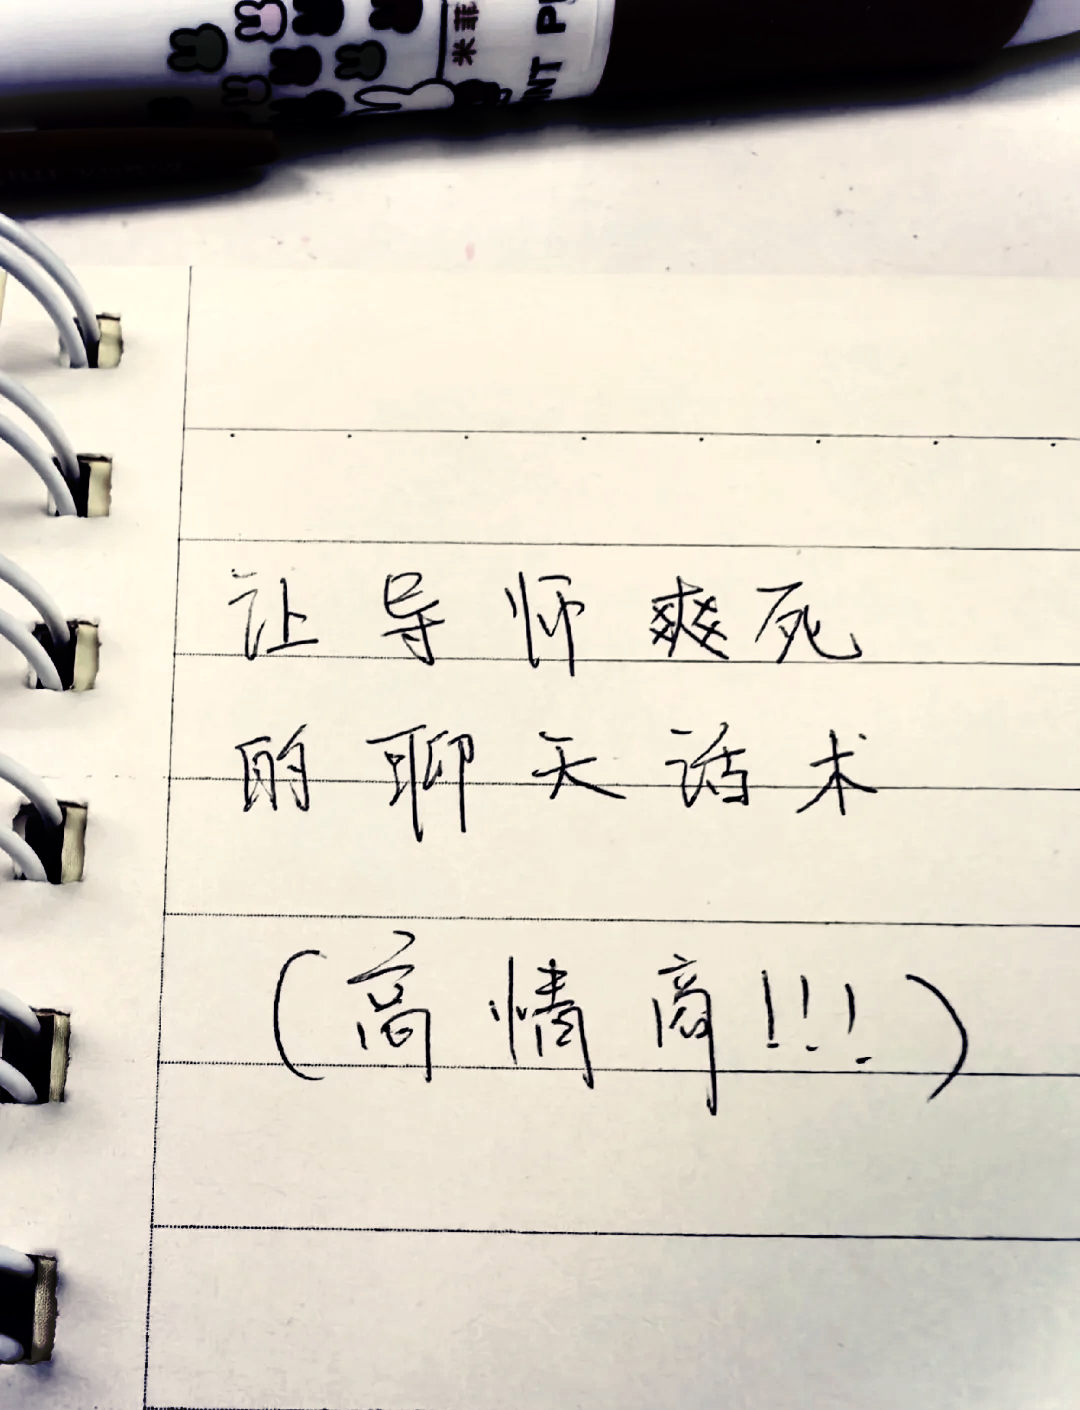 米菲
INT P
让导师爽死
的聊天话术
(高情商!!!)